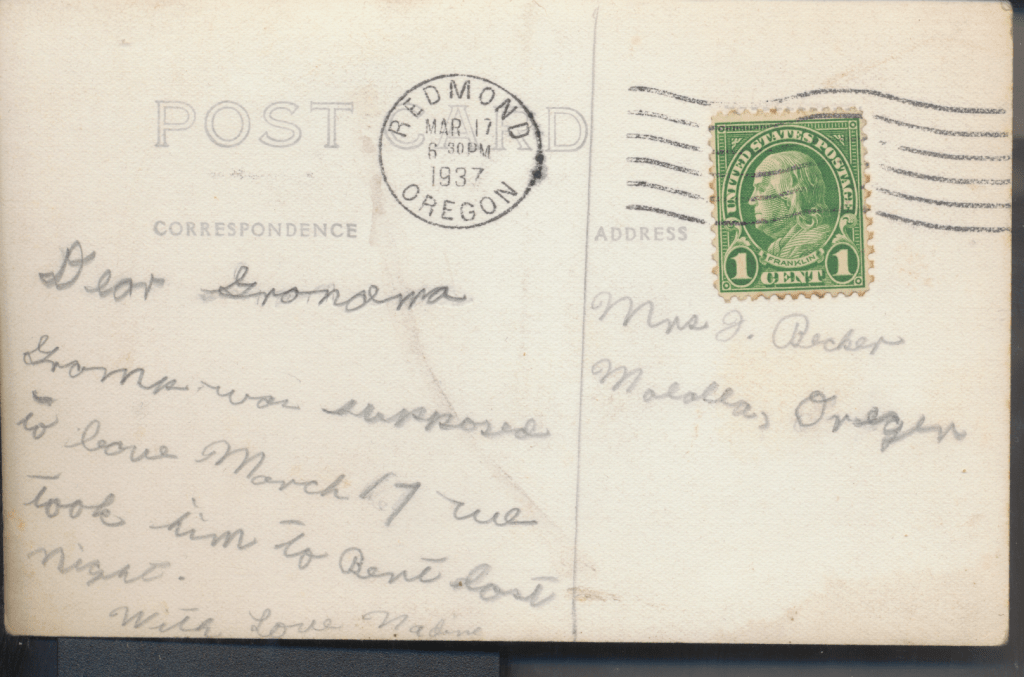 POST CARD
REDMOND
MAR 17
6 30 PM
1937
OREGON
UNITED STATES POSTAGE
FRANKLIN
1 CENT 1
CORRESPONDENCE
ADDRESS
Dear Grandma
Gramp was supposed
to leave March 17 we
took him to Bent last
night.
With Love Nadine
Mrs J. Becker
Molalla, Oregon